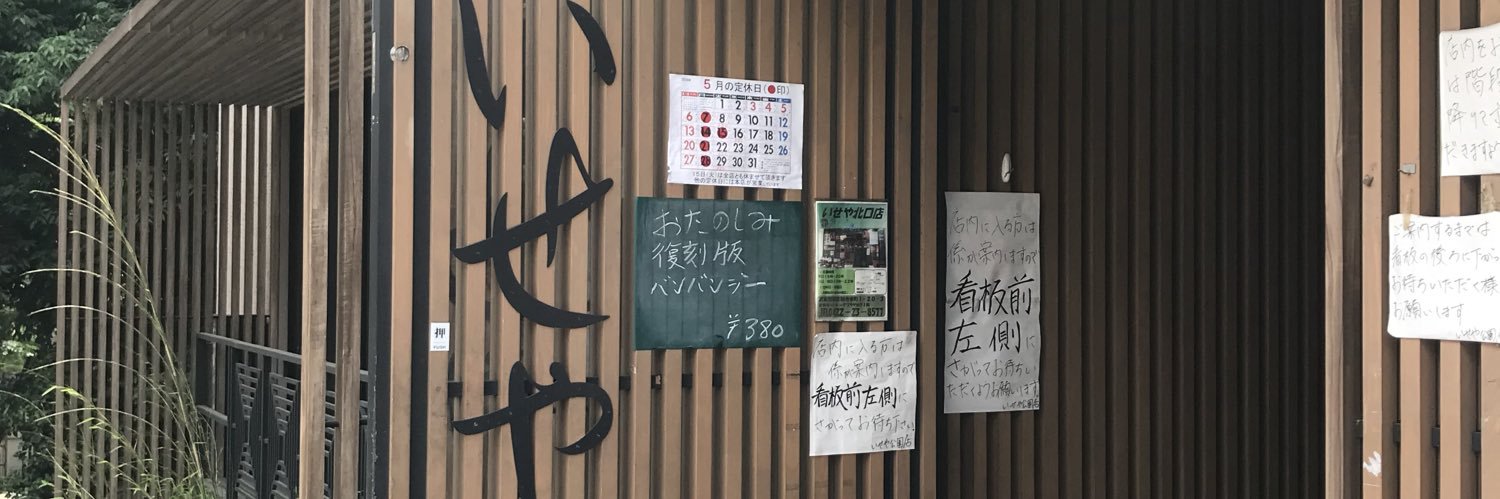 いせや
5月の定休日(●印)
1 2 3 4 5
6 7 8 9 10 11 12
13 14 15 16 17 18 19
20 21 22 23 24 25 26
27 28 29 30 31
15日(火)は全店とも休ませて頂きます
他の定休日には本店が営業
おたのしみ
復刻版
バンバンジー
¥380
いせや北口店
押
店内に入る方は
係が案内しますので
看板前左側に
さがってお待ち下さい
いせや公園店
店内に入る方は
係が案内しますので
看板前
左側に
さがってお待ちい
ただくようお願います
いせや公園店
店内を
は階段
降りて
だきます
ご案内するまでは
看板の後ろに下がっ
お待ちいただく様
お願いします
いせや公園